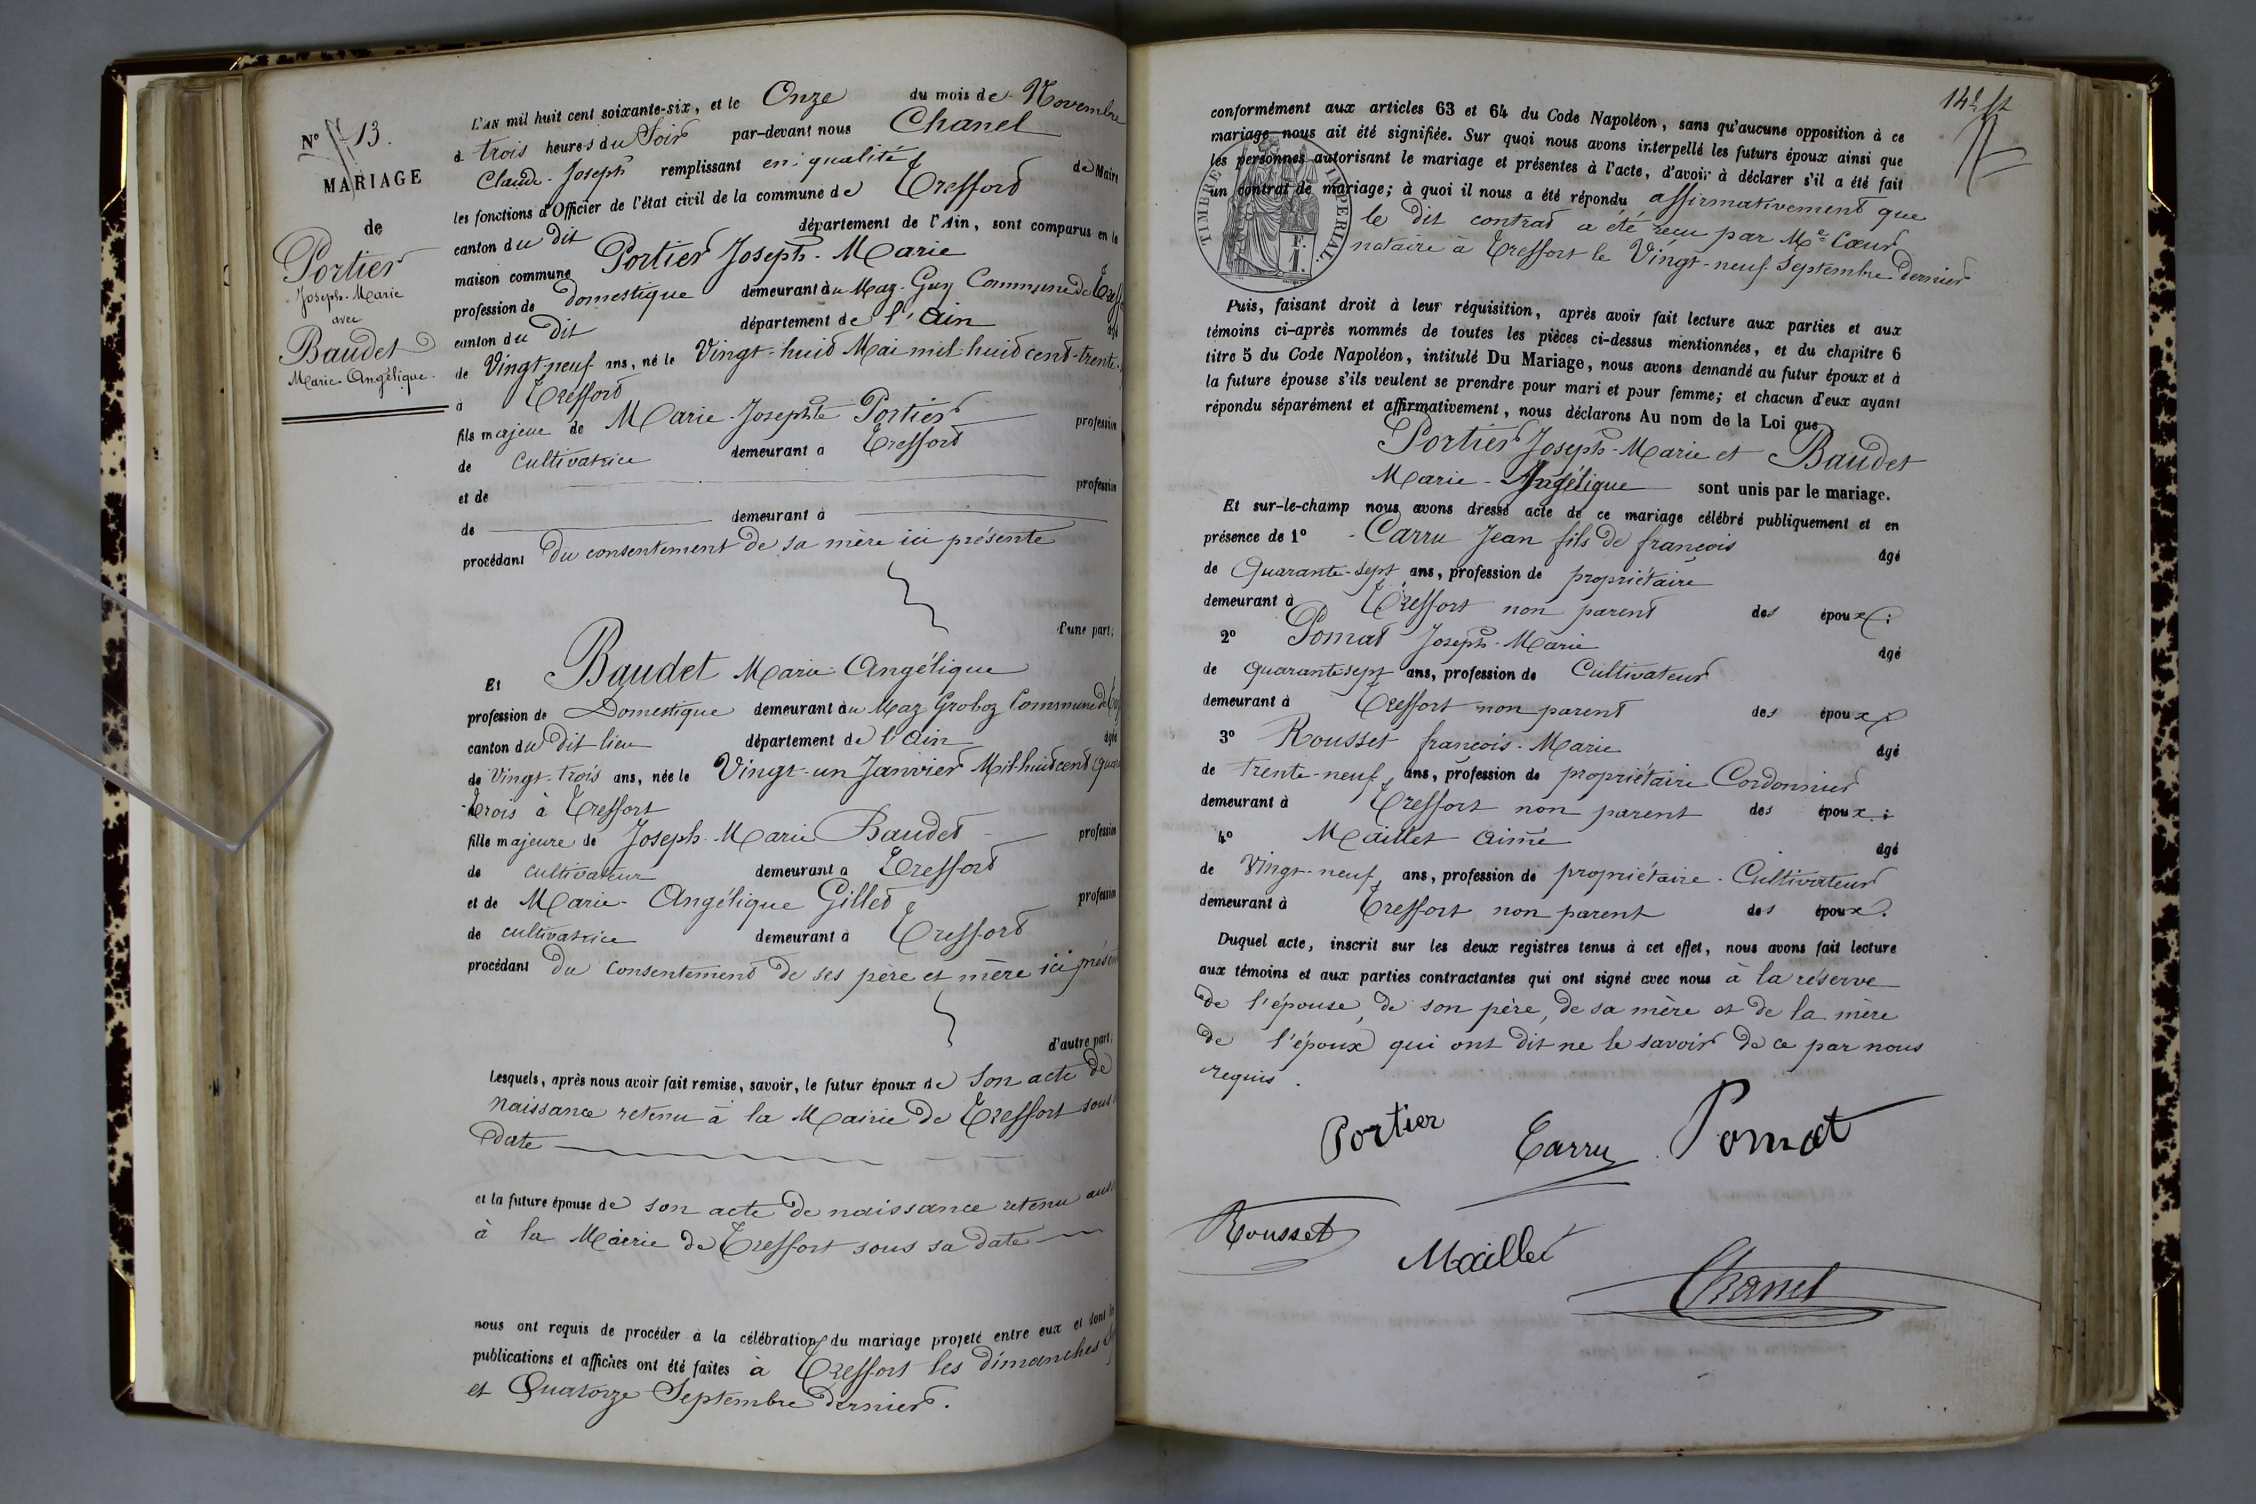 L'AN mil huit cent soixante-six, et le Onze du mois de Novembre
à trois heures du Soir par-devant nous Chanel
Claude-Joseph remplissant en qualité de Maire
les fonctions d'Officier de l'état civil de la commune de Treffort
canton du dit département de l'Ain, sont comparus en la
maison commune Portier Joseph-Marie
profession de domestique demeurant au Maz-Guy Commune de
canton du dit département de l'Ain âgé
de Vingt-neuf ans, né le Vingt-huit Mai mil-huit cent-trente-
à Treffort
fils majeur de Marie Josephte Portier profession
de cultivatrice demeurant a Treffort
et de profession
de demeurant à
procédant du consentement de sa mère ici présente
d'une part;
Et Baudet Marie-Angélique
profession de Domestique demeurant au Maz Groboz Commune de
canton du dit lieu département de l'Ain âgée
de Vingt-trois ans, née le Vingt-un Janvier Mil-huit cent
trois à Treffort
fille majeure de Joseph-Marie Baudet profession
de cultivateur demeurant a Treffort
et de Marie-Angélique Gillet profession
de cultivatrice demeurant à Treffort
procédant du consentement de ses père et mère ici
d'autre part;
Lesquels, après nous avoir fait remise, savoir, le futur époux de son acte de
naissance retenu à la Mairie de Treffort sous
date
et la future épouse de son acte de naissance retenu
à la Mairie de Treffort sous sa date
nous ont requis de procéder à la célébration du mariage projeté entre eux et dont les
publications et affiches ont été faites à Treffort les dimanches
et Quatorze Septembre dernier.
N° 13.
MARIAGE
de
Portier
Joseph-Marie
avec
Baudet
Marie-Angélique.
conformément aux articles 63 et 64 du Code Napoléon, sans qu'aucune opposition à ce
mariage nous ait été signifiée. Sur quoi nous avons interpellé les futurs époux ainsi que
les personnes autorisant le mariage et présentes à l'acte, d'avoir à déclarer s'il a été fait
un contrat de mariage; à quoi il nous a été répondu affirmativement que
le dit contrat a été reçu par Me Cœur
notaire à Treffort le Vingt-neuf Septembre dernier
TIMBRE IMPERIAL.
Puis, faisant droit à leur réquisition, après avoir fait lecture aux parties et aux
témoins ci-après nommés de toutes les pièces ci-dessus mentionnées, et du chapitre 6
titre 5 du Code Napoléon, intitulé Du Mariage, nous avons demandé au futur époux et à
la future épouse s'ils veulent se prendre pour mari et pour femme; et chacun d'eux ayant
répondu séparément et affirmativement, nous déclarons Au nom de la Loi que
Portier Joseph-Marie et Baudet
Marie-Angélique sont unis par le mariage.
Et sur-le-champ nous avons dressé acte de ce mariage célébré publiquement et en
présence de 1° Carru Jean fils de françois âgé
de Quarante-sept ans, profession de propriétaire
demeurant à Treffort non parent des époux;
2° Pomat Joseph-Marie âgé
de quarante-sept ans, profession de Cultivateur
demeurant à Treffort non parent des époux
3° Rousset françois-Marie âgé
de trente-neuf ans, profession de propriétaire Cordonnier
demeurant à Treffort non parent des époux;
4° Maillet aimé âgé
de Vingt-neuf ans, profession de propriétaire-Cultivateur
demeurant à Treffort non parent des époux.
Duquel acte, inscrit sur les deux registres tenus à cet effet, nous avons fait lecture
aux témoins et aux parties contractantes qui ont signé avec nous à la réserve
de l'épouse, de son père, de sa mère et de la mère
de l'époux qui ont dit ne le savoir de ce par nous
requis.
Portier Carru Pomat
Rousset Maillet
Chanel